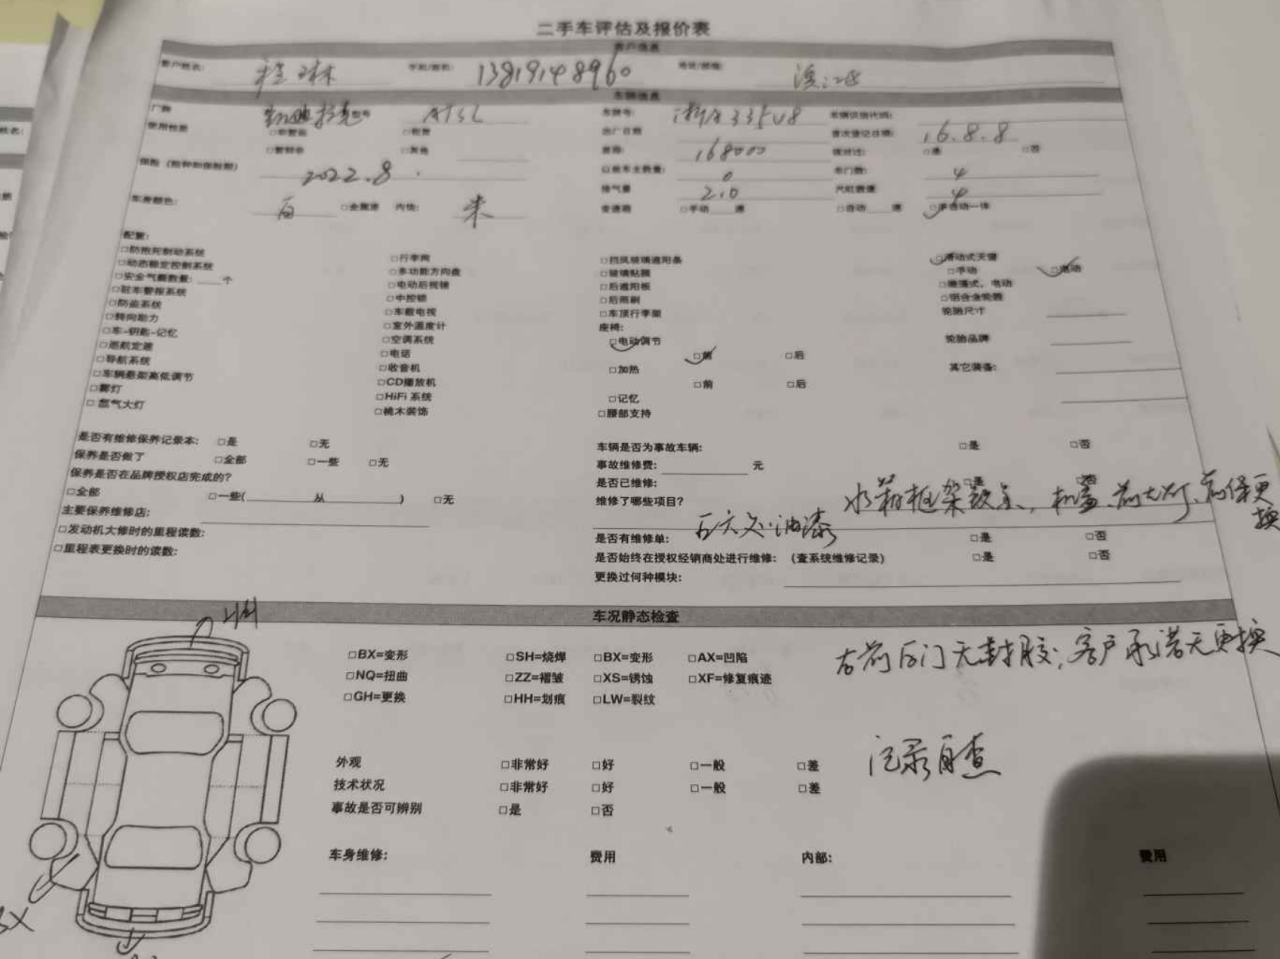 二手车评估及报价表
客户信息
客户姓名: 程琳 手机/座机: 13819148960 地址/邮编: 滨江
车辆信息
厂牌 凯迪拉克 型号 ATSL 车牌号: 浙A335V8 车辆识别代码:
使用性质 □非营运 □租赁 出厂日期 首次登记日期: 16.8.8
□营转非 □其他 里程: 168000 □是 □否
保险 2022.8. 以前车主数量: 0 车门数: 4
排气量 2.0 汽缸数量 4
车身颜色: 白 □金属漆 内饰: 米 变速箱 □手动 速 □自动 速 □手自动一体
配置:
□防抱死制动系统 □行李网 □挡风玻璃遮阳条 □滑动式天窗
□动态稳定控制系统 □多功能方向盘 □玻璃贴膜 □手动 □电动
□安全气囊数量: 个 □电动后视镜 □后遮阳板 电动
□驻车警报系统 □中控锁 □后雨刷 □铝合金轮毂
□防盗系统 □车载电视 □车顶行李架 轮胎尺寸
□转向助力 □室外温度计 座椅:
□车-钥匙-记忆 □空调系统 □电动调节 轮胎品牌
□巡航定速 □电话 □前 □后
□导航系统 □收音机 □加热 其它装备:
□车辆悬架高低调节 □CD播放机 □前 □后
□雾灯 □HiFi 系统 □记忆
□氙气大灯 □桃木装饰 □腰部支持
是否有维修保养记录本: □是 □无 车辆是否为事故车辆: □是 □否
保养是否做了 □全部 □一些 □无 事故维修费: 元
保养是否在品牌授权店完成的? 是否已维修: □是 □否
□全部 □一些( 从 ) □无 维修了哪些项目? 水箱框架 机盖、前大灯、前保更换
主要保养维修店: 油漆
□发动机大修时的里程读数: 是否有维修单: □是 □否
□里程表更换时的读数: 是否始终在授权经销商处进行维修: (查系统维修记录) □是 □否
更换过何种模块:
车况静态检查
□BX=变形 □SH=烧焊 □BX=变形 □AX=凹陷 右前后门无封胶,客户承诺无更换
□NQ=扭曲 □ZZ=褶皱 □XS=锈蚀 □XF=修复痕迹
□GH=更换 □HH=划痕 □LW=裂纹
外观 □非常好 □好 □一般 □差 记录自查
技术状况 □非常好 □好 □一般 □差
事故是否可辨别 □是 □否
车身维修: 费用 内部: 费用